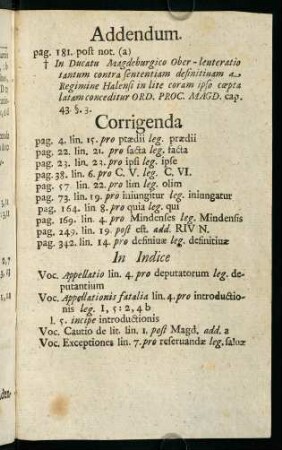 Addendum.
pag. 181. post not. (a)
† In Ducatu Magdeburgico Ober-leuteratio
tantum contra sententiam definitivam a
Regimine Halensi in lite coram ipso cœpta
latam conceditur ORD. PROC. MAGD. cap.
43. §. 3.
Corrigenda
pag. 4. lin. 15. pro prædii leg. prædii
pag. 22. lin. 21. pro facta leg. tacta
pag. 23. lin. 23. pro ipsi leg. ipse
pag. 38. lin. 6. pro C. V. leg. C. VI.
pag. 57. lin. 22. pro lim leg. olim
pag. 73. lin. 19. pro iniungitur leg. iniungatur
pag. 164. lin. 8. pro quia leg. qui
pag. 169. lin. 4. pro Mindenses leg. Mindensis
pag. 249. lin. 19. post est. add. RIV N.
pag. 342. lin. 14. pro definiuæ leg. definitiuæ
In Indice
Voc. Appellatio lin. 4. pro deputatorum leg. de-
putantium
Voc. Appellationis fatalia lin. 4. pro introductio-
nis leg. 1, 5: 2, 4 b
l. 5. incipe introductionis
Voc. Cautio de lit. lin. 1. post Magd. add. a
Voc. Exceptiones lin. 7. pro reseruandæ leg. saluæ